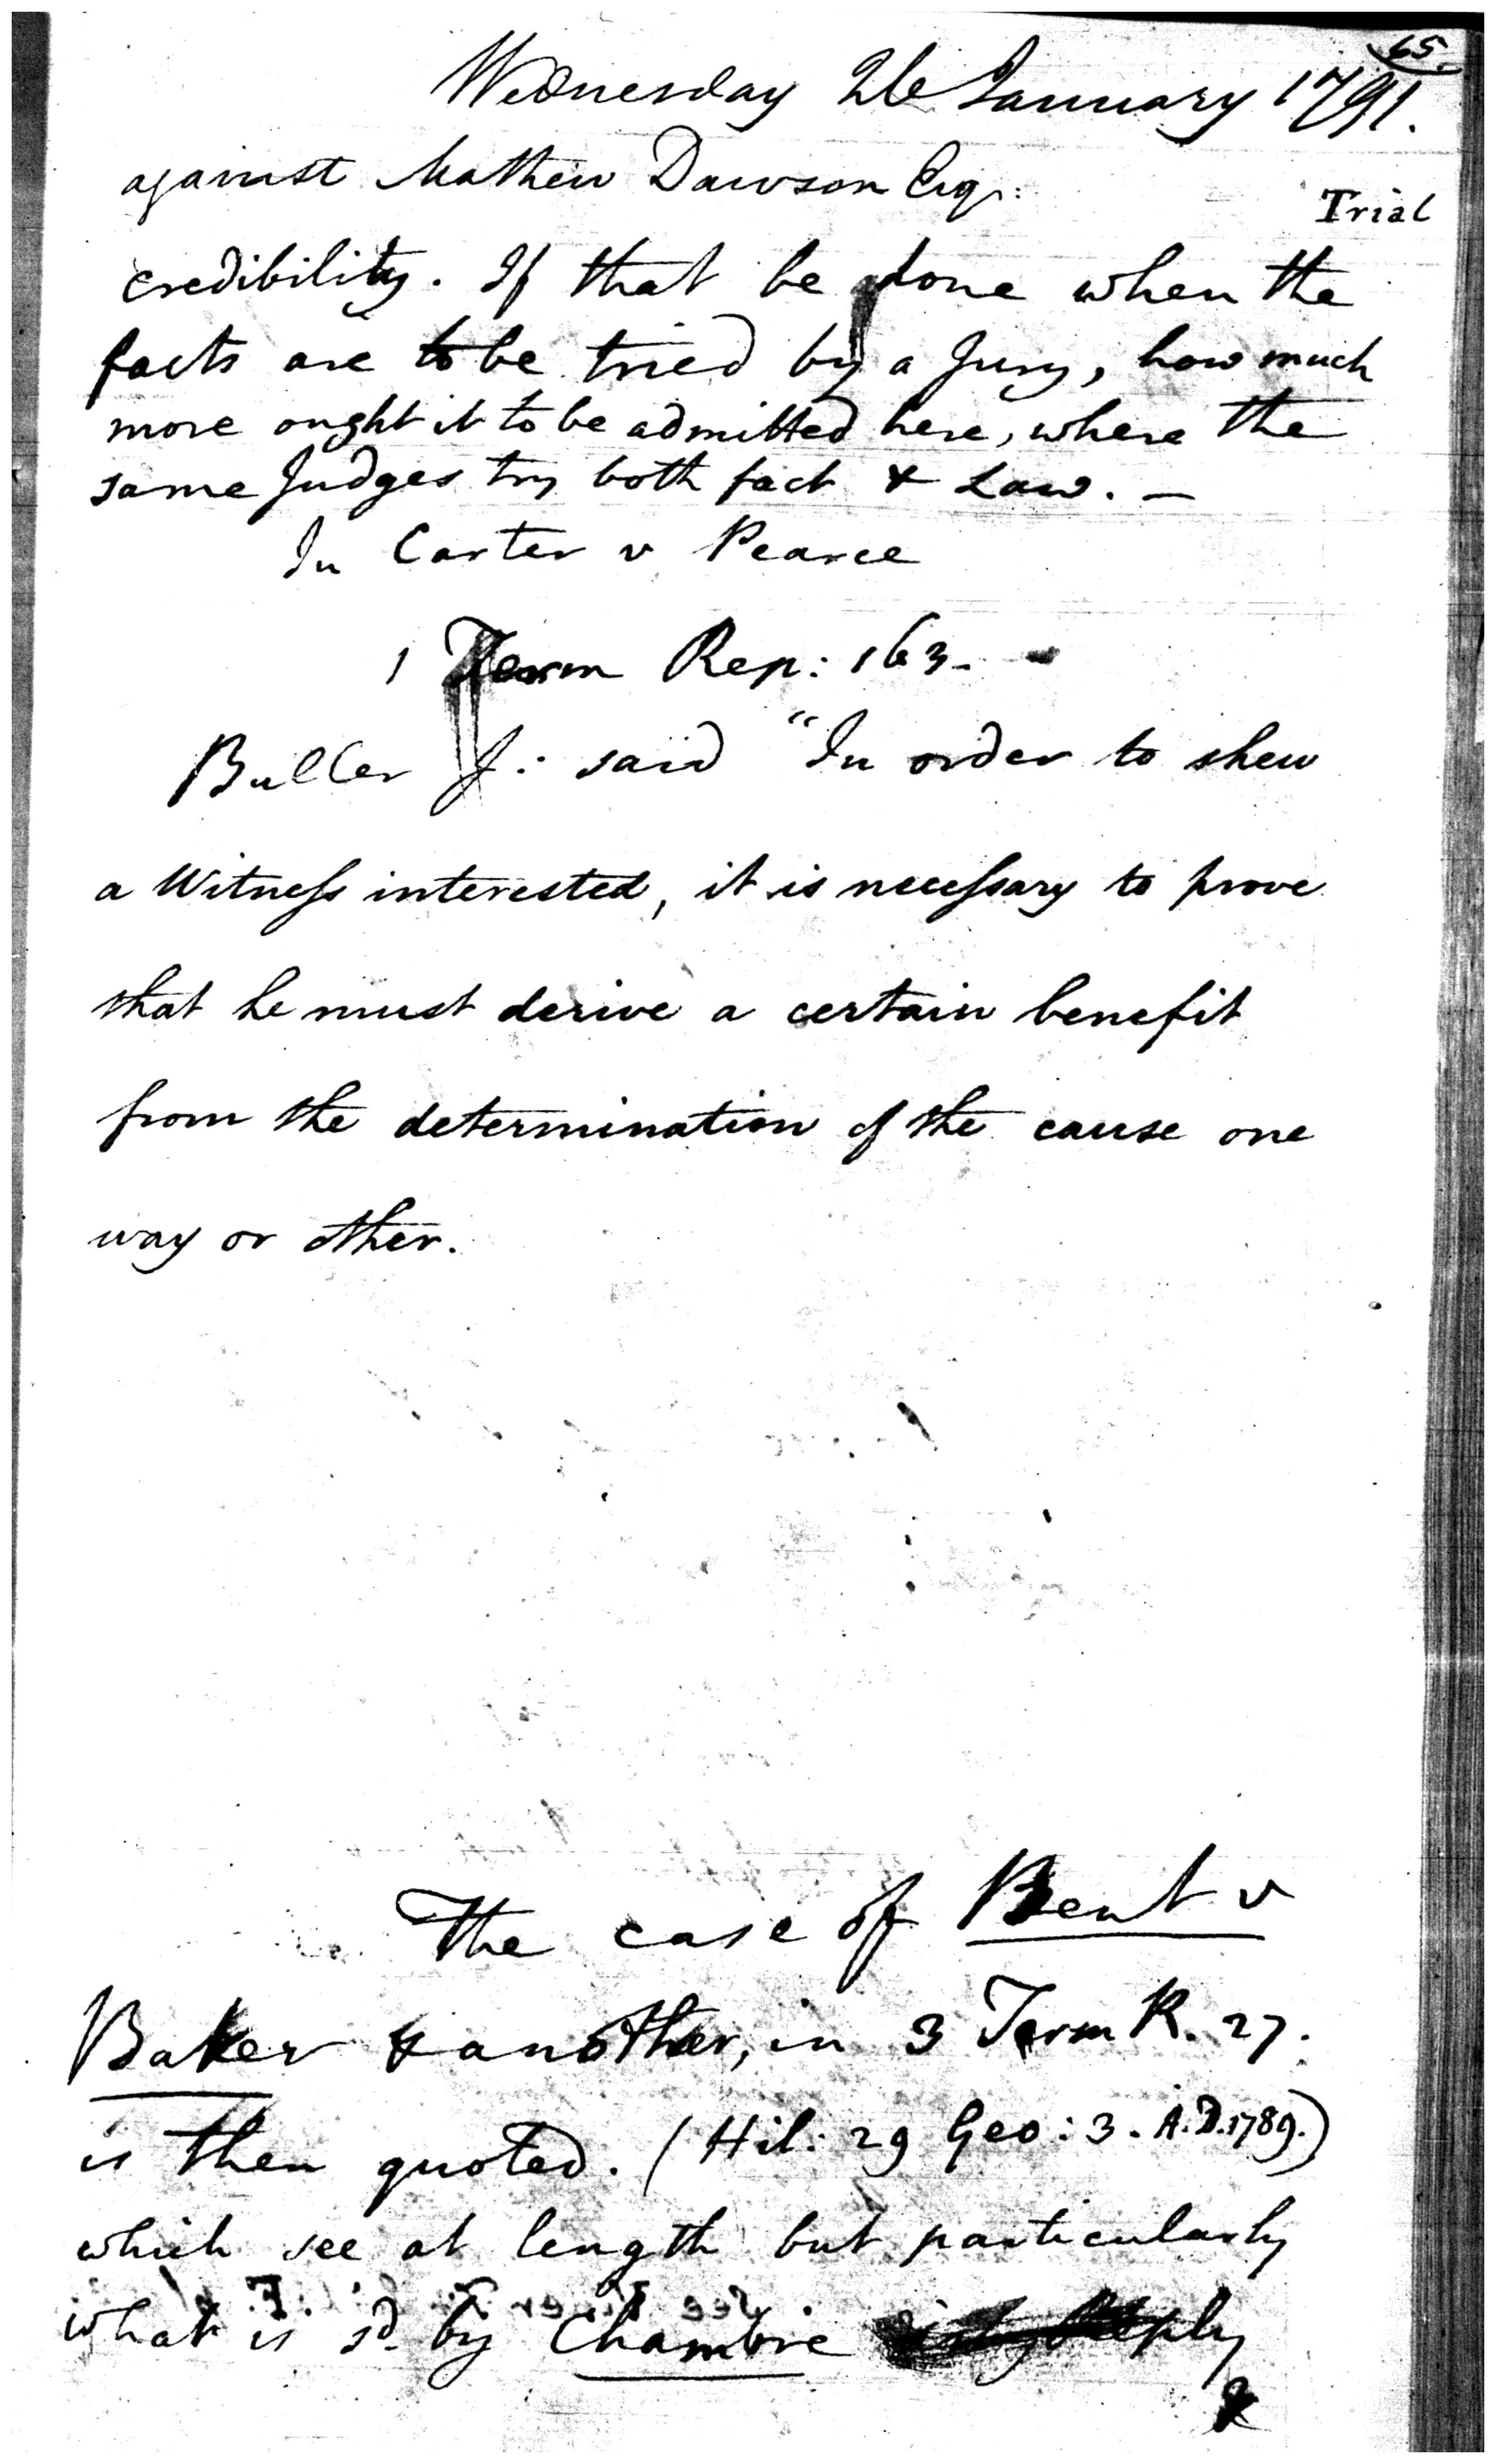 65.
Wednesday 26 January 1791.
against Mathew Dawson Esqr:
Trial
credibility. If that be done when the
facts are to be tried by a Jury, how much
more ought it to be admitted here, where the
same Judges try both fact & Law. —
In Carter v Pearce
1 Term Rep: 163. -
Buller J: said "In order to shew
a Witness interested, it is necessary to prove
that he must derive a certain benefit
from the determination of the cause one
way or other.
The case of Bent v
Baker & another, in 3 Term R. 27.
is then quoted. (Hil: 29 Geo: 3. A.D. 1789.)
which see at length but particularly
what is sd. by Chambre
&